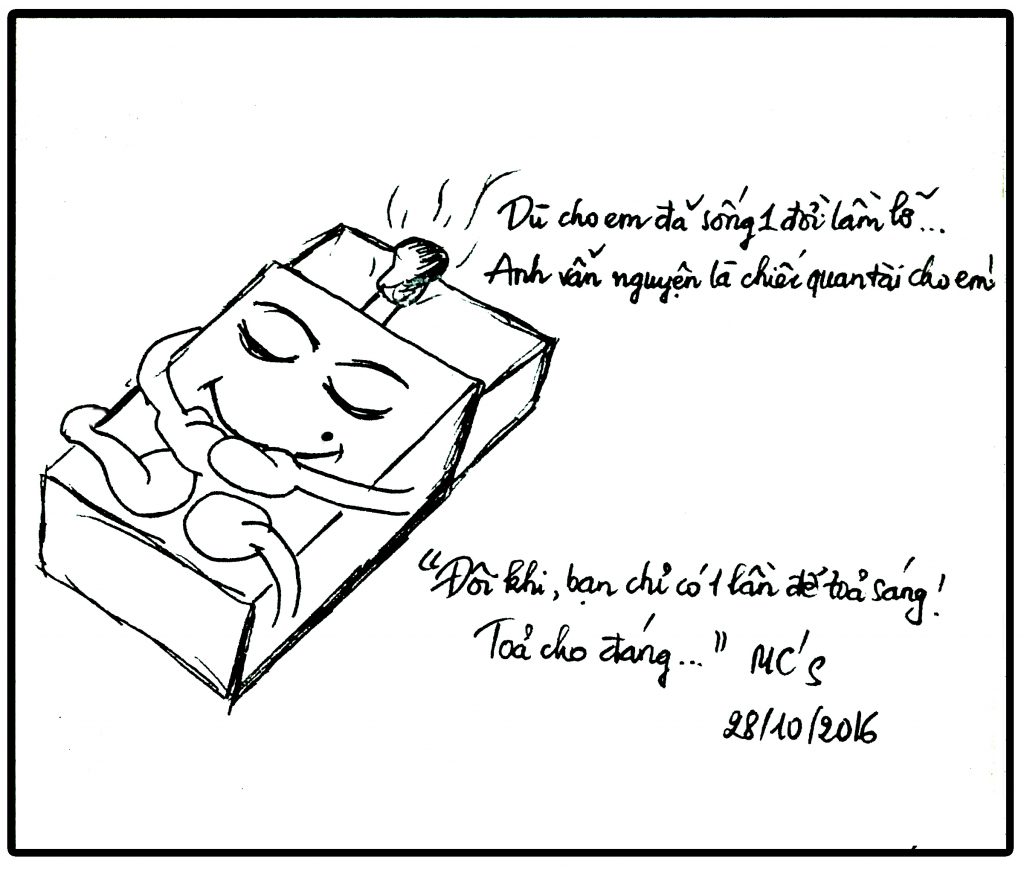 Dù cho em đã sống 1 đời lầm lỡ...
Anh vẫn nguyện là chiếc quan tài cho em!
"Đôi khi, bạn chỉ có 1 lần để toả sáng!
Toả cho đáng..." MC's
28/10/2016